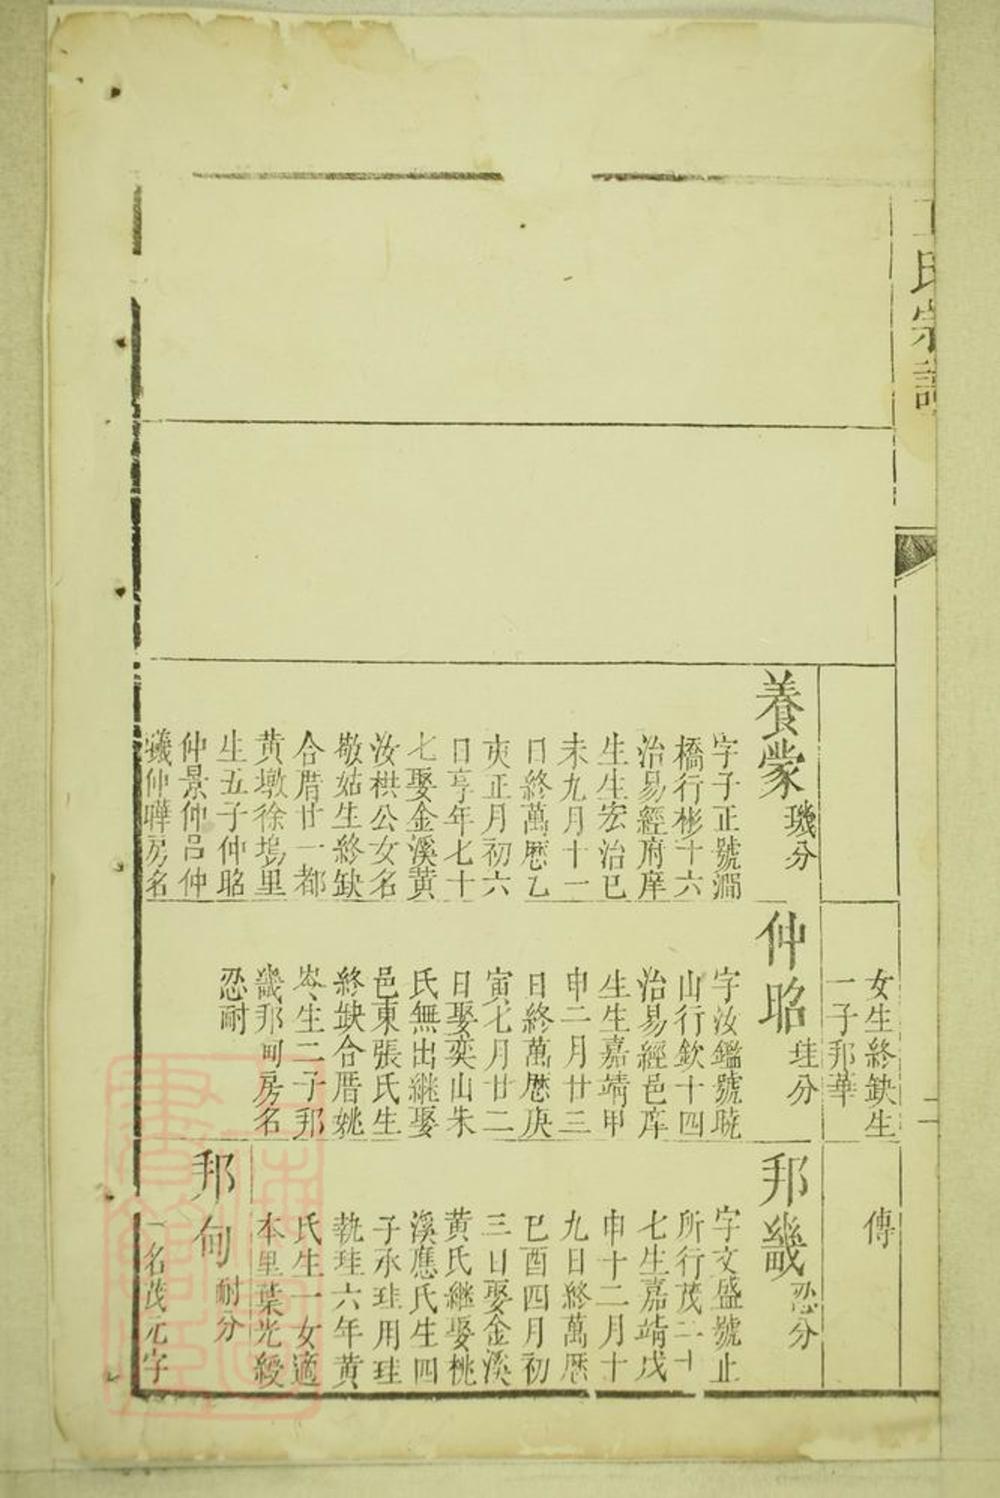 氏宗譜
二
女生終缺生
一子邦華
傳
養蒙
璣分
字子正號澗
橋行彬十六
治易經府庠
生生宏治巳
未九月十一
日終萬厯乙
亥正月初六
日享年七十
七娶金溪黃
汝栱公女名
敬姑生終缺
合厝廿一都
黃墩徐塢里
生五子仲昭
仲景仲呂仲
羲仲曄房名
仲昭
珪分
字汝鑑號曉
山行欽十四
治易經邑庠
生生嘉靖甲
申二月廿三
日終萬厯庚
寅七月廿二
日娶奕山朱
氏無出継娶
邑東張氏生
終缺合厝姚
岺生二子邦
畿邦甸房名
忍耐
邦畿
忍分
字文盛號止
所行茂二十
七生嘉靖戊
申十二月十
九日終萬厯
巳酉四月初
三日娶金溪
黃氏継娶桃
溪應氏生四
子永珪用珪
執珪六年黃
氏生一女適
本里葉光綬
邦甸
耐分
一名茂元字